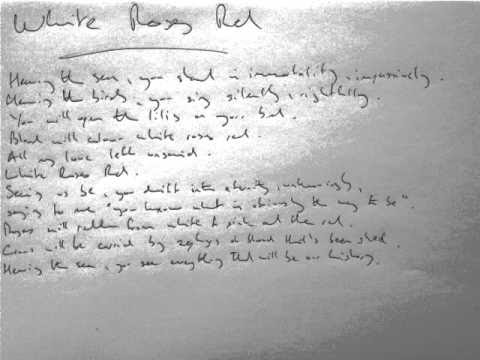 White Roses Red
Hearing the sea, you stand in immobility, impassively.
Hearing the birds, you sing silently, nightfully.
You will open the lilis on your bed.
Blood will colour white roses red.
All my love left unsaid.
White Roses Red.
Seeing us be, you drift into eternity, unknowingly,
saying to me "you know what is obviously the way to be".
Roses will redden from white to pink and then red.
Crows will be carried by zephyrs of blood that's been shed.
Hearing the sea, you see everything that will be our history.